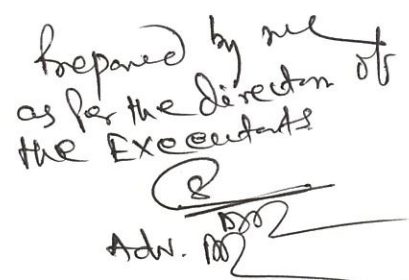 Prepared by me
as per the direction of
the Executants
Adv.